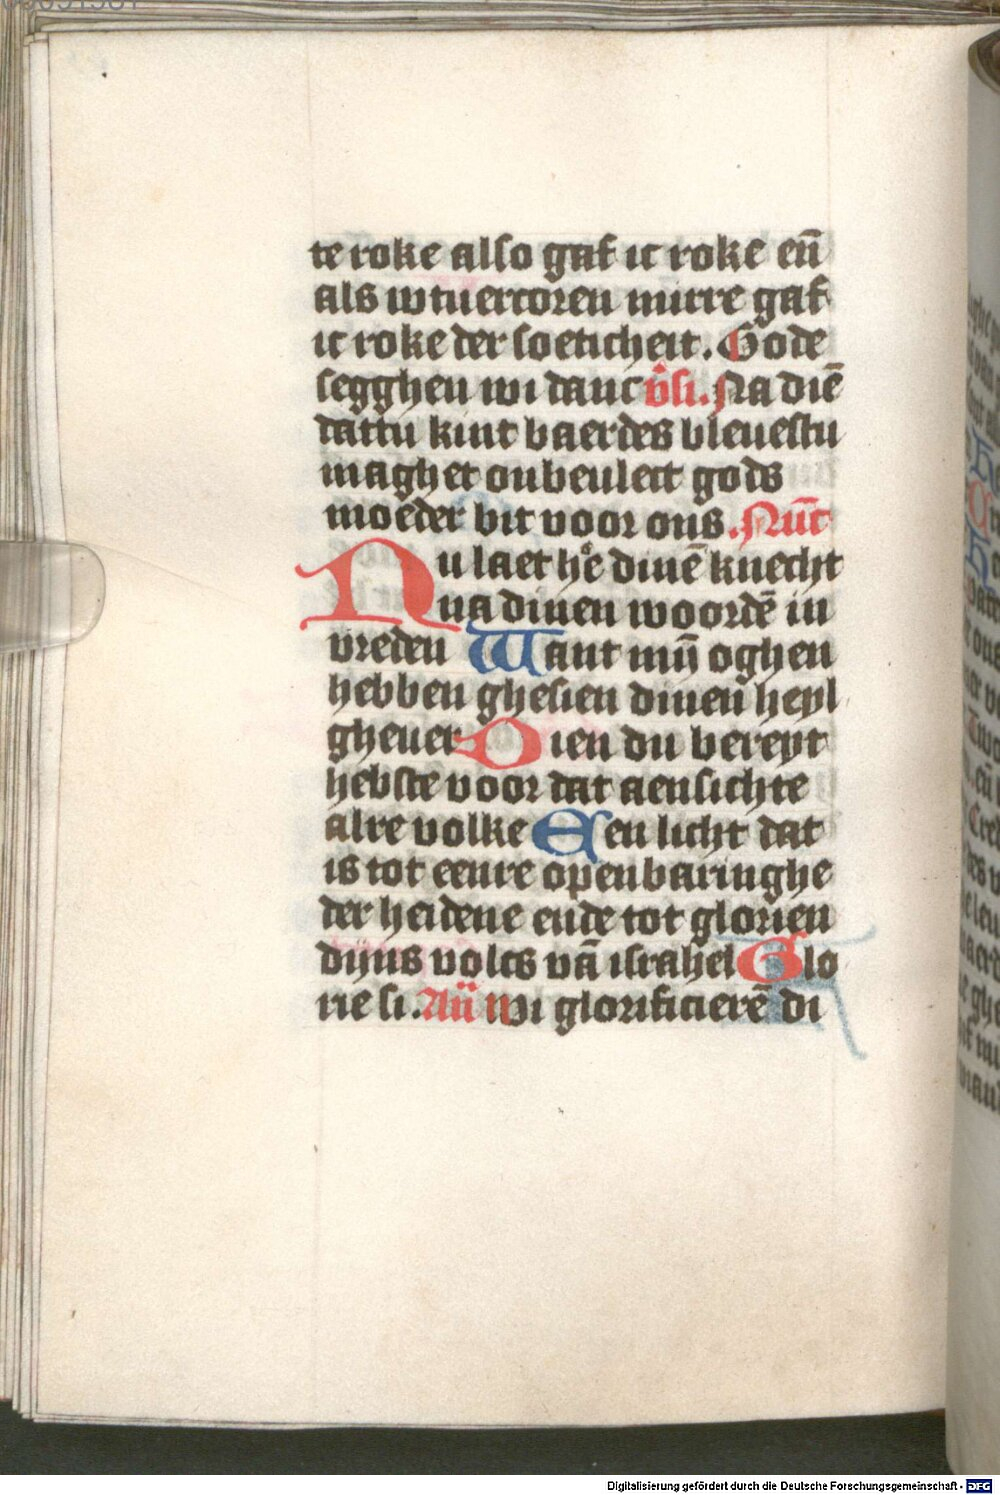 te roke also gaf ic roke en̄
als wtuercoren mirre gaf
ic roke der soeticheit. Gode
segghen wi danc v̂si. Na diē
dattu kint baerdes bleuestu
maghet onbeulect gods
moeder bit voor ons. Nūc
Nu laet hē dinē knecht
na dinen woordē in
vreden Want mīj oghen
hebben ghesien dinen heyl
gheuer Dien du bereyt
hebste voor dat aensichte
alre volke Een licht dat
is tot eenre openbaringhe
der heidene ende tot glorien
dijns volcs vā israhel Glo
rie si. Añ Wi glorificierē di
Digitalisierung gefördert durch die Deutsche Forschungsgemeinschaft - DFG